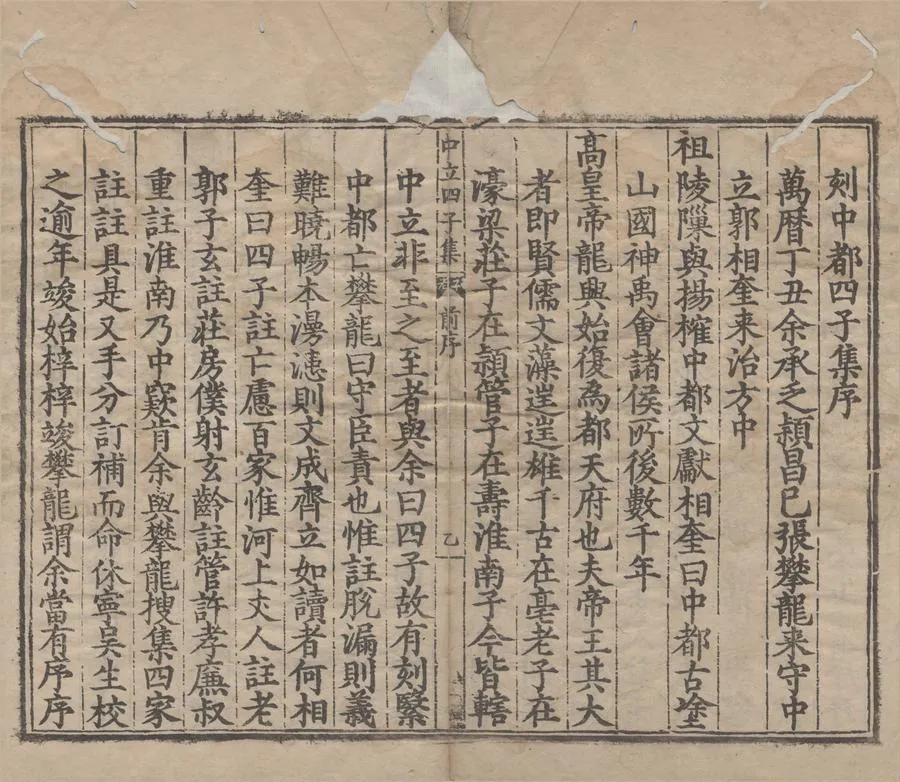 刻中都四子集序
萬曆丁丑余承乏潁昌巳張攀龍来守中
立郭相奎来治方中
祖陵隟與揚搉中都文獻相奎曰中都古塗
山國神禹會諸侯所後數千年
高皇帝龍興始復為都天府也夫帝王其大
者即賢儒文藻逞逞雄千古在亳老子在
濠梁莊子在潁管子在壽淮南子今皆轄
中立四子集 前序 乙
中立非至之至者與余曰四子故有刻緊
中都亡攀龍曰守臣責也惟註脫漏則義
難曉暢本漫漶則文成齊立如讀者何相
奎曰四子註亡慮百家惟河上丈人註老
郭子玄註莊房僕射玄齡註管許孝廉叔
重註淮南乃中窾肯余與攀龍搜集四家
註註具是又手分訂補而命休寧吳生校
之逾年竣始梓梓竣攀龍謂余當有序序